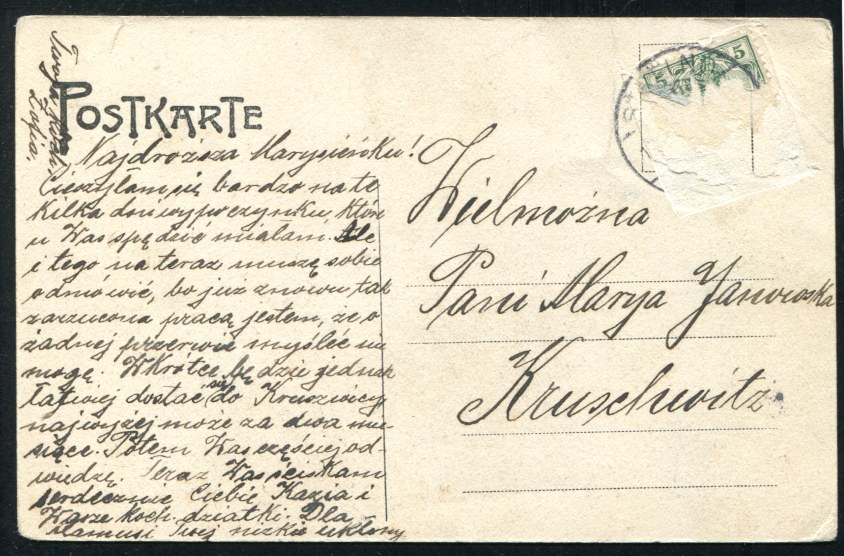 POSTKARTE
Twoja
Zofia.
Najdroższa Marysieńku!
Cieszyłam się bardzo na te
kilka dni wypoczynku, które
u Was spędzić miałam. Ale
i tego na teraz muszę sobie
odmówić, bo już znowu tak
zarzucona pracą jestem, że o
żadnej przerwie myśleć nie
mogę. Wkrótce będzie jednak
łatwiej dostać się do Kruszwicy
najwyżej może za dwa mie-
siące. Potem Was częściej od-
wiedzę. Teraz Was ściskam
serdecznie Ciebie Kazia i
Wasze koch. dziatki. Dla
Mamusi Twej nizkie ukłony
5 5
Wielmożna
Pani Marya Janowska
Kruschwitz